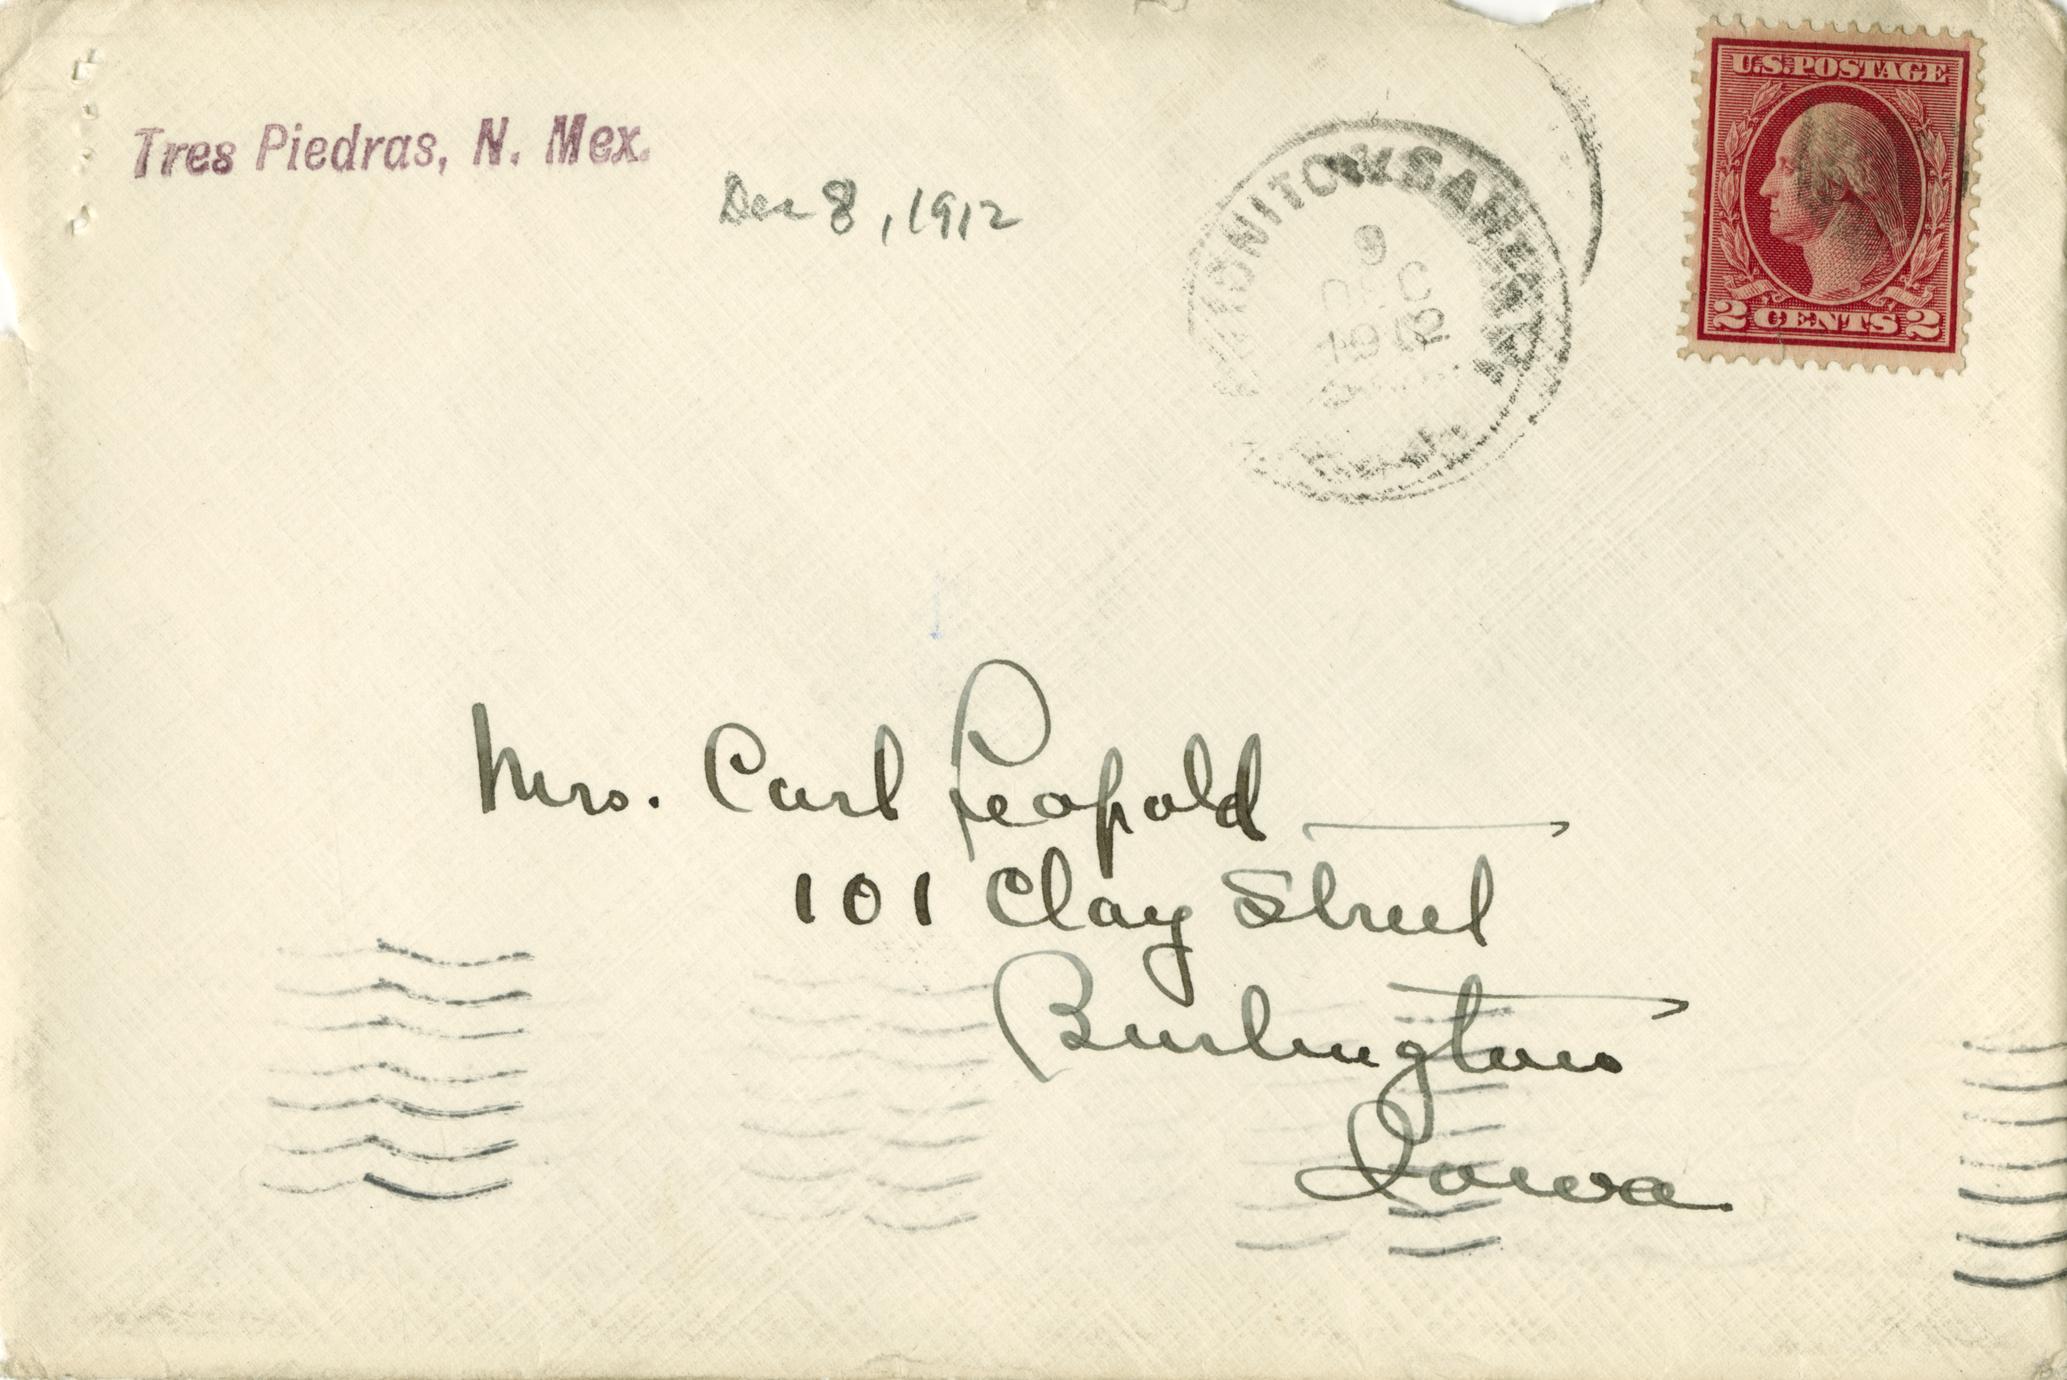 Tres Piedras, N. Mex.
Dec 8, 1912
9
DEC
1912
U.S. POSTAGE
2 CENTS 2
Mrs. Carl Leopold
101 Clay Street
Burlington
Iowa